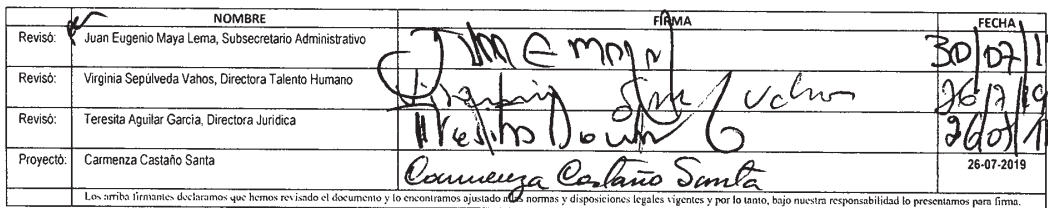 NOMBRE FIRMA FECHA
Revisó: Juan Eugenio Maya Lema, Subsecretario Administrativo 30/07/1
Revisó: Virginia Sepúlveda Vahos, Directora Talento Humano 26/7/19
Revisó: Teresita Aguilar García, Directora Jurídica
Proyectó: Carmenza Castaño Santa Carmenza Castaño Santa 26-07-2019
Los arriba firmantes declaramos que hemos revisado el documento y lo encontramos ajustado a las normas y disposiciones legales vigentes y por lo tanto, bajo nuestra responsabilidad lo presentamos para firma.